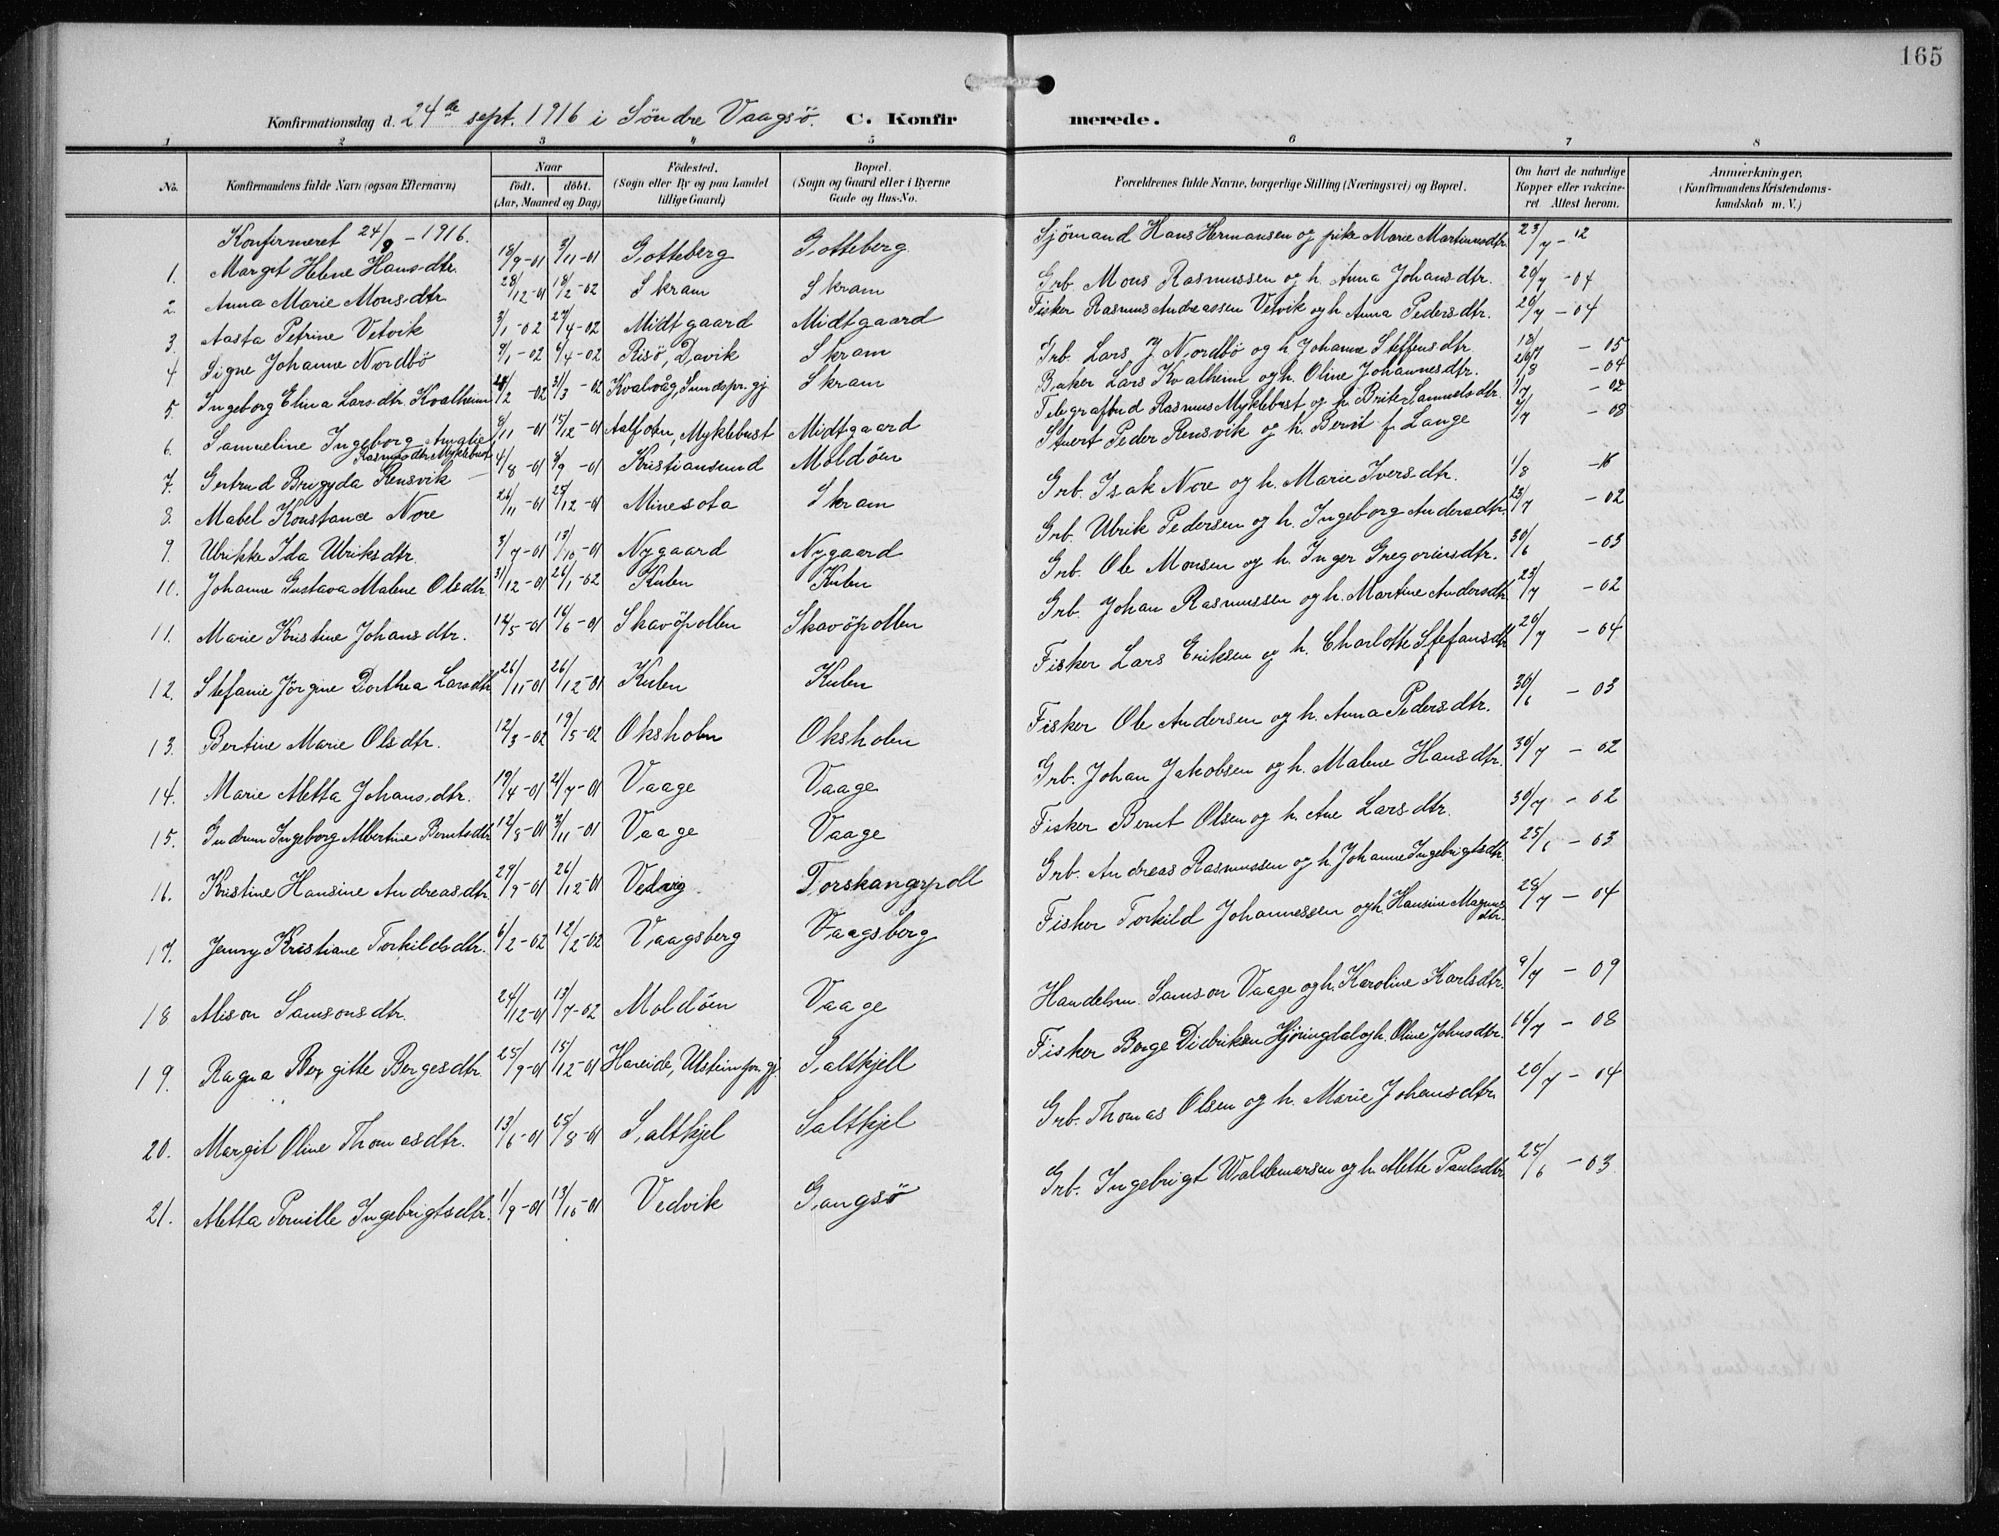 165
Konfirmationsdag d. 24de sept. 1916 i Söndre Vaagsö. C. Konfirmerede.
1 2 3 4 5 6 7 8
No. Konfirmandens fulde Navn (ogsaa Efternavn) Naar født. døbt. (Aar, Maaned og Dag) Födested. (Sogn eller By og paa Landet tillige Gaard) Bopæl. (Sogn og Gaard eller i Byerne Gade og Hus-No. Forældrenes fulde Navne, borgerlige Stilling (Næringsvei) og Bopæl. Om havt de naturlige Kopper eller vakcineret Attest herom. Anmærkninger. (Konfirmandens Kristendomskundskab m. V.)
Konfirmeret 24/9 - 1916.
1. Margit Helene Hansdtr. 18/9-01 3/11-01 Gotteberg Gotteberg Sjömand Hans Hermansen og pike Marie Martinusdtr 23/7-12
2. Anna Marie Monsdtr 28/12-01 18/2-02 Skram Skram Grb. Mons Rasmussen og h. Anna Johansdtr. 20/7-04
3. Aasta Petrine Vetvik 3/1-02 27/4-02 Midtgaard Midtgaard Fisker Rasmus Andreassen Vetvik og h. Anna Pedersdtr. 20/7-04
4 Signe Johanne Nordbö 9/1-02 6/4-02 Risö, Davik Skram Grb. Lars J Nordbö og h Johanne Steffensdtr 18/7-05
5. Ingeborg Elina Larsdtr Kvalheim /2-02 31/3-02 Kvalvåg, Sundspr. gj Skram Baker Lars Kvalheim og h. Oline Johannesdtr. /8-04
6. Samueline Ingeborg Amalie Rasmusdtr Myklebust 8/11-01 15/12-01 Aalfoten, Myklebust Midtgaard Telegrafbud Rasmus Myklebust og h Brite Samuelsdtr. 1/7-08
7. Gertrud Brigyda Rensvik 4/8-01 8/9-01 Kristiansund Moldöen Stuert Peder Rensvik og h. Berit f. Lange /7-08
8. Mabel Konstance Nore 26/11-01 25/12-01 Minesota Skram Grb. Isak Nore og h. Marie Iversdtr. 1/8-15
9. Ulrikke Ida Ulriksdtr. 3/7-01 13/10-01 Nygaard Nygaard Grb. Ulrik Pedersen og h. Ingeborg Andersdtr 23/7-02
10. Johanne Gustava Malene Olsdtr 31/12-01 26/1-02 Kulen Kulen Grb. Ole Monsen og h. Inger Gregoriusdtr. 30/6-03
11. Marie Kristine Johansdtr. 12/5-01 16/6-01 Skavöpollen Skavöpollen Grb. Johan Rasmussen og h. Martine Andersdtr 23/7-02
12. Stefanie Jörgine Dorthea Larsdtr 26/11-01 26/12-01 Kulen Kulen Fisker Lars Eriksen og h. Charlotte Stefansdtr 20/7-04
13. Bertine Marie Olsdtr. 12/3-02 19/5-02 Oksholen Oksholen Fisker Ole Andersen og h. Anna Pedersdtr. 30/6-03
14. Marie Metta Johansdtr. 19/4-01 21/7-01 Vaage Vaage Grb. Johan Jakobsen og h. Malene Hansdtr. 30/7-02
15. Gudrun Ingeborg Albertine Berntsdtr 12/8-01 3/11-01 Vaage Vaage Fisker Bernt Olsen og h. Ane Larsdtr. 30/7-02
16. Kristine Hansine Andreasdtr 29/9-01 26/12-01 Vedvig Torskangerpoll Grb. Andreas Rasmussen og h Johanne Ingebrigtsdtr. 25/6-03
17. Jenny Kristiane Torkildsdtr. 6/2-02 12/2-02 Vaagsberg Vaagsberg Fisker Torkild Johannessen og h. Hansine Magnusdtr. 28/7-04
18 Alison Samsonsdtr. 24/12-01 13/7-02 Moldöen Vaage Handelsm. Samson Vaage og h. Karoline Karlsdtr. 9/7-09
19. Ragna Bergitte Bergesdtr 25/9-01 15/12-01 Hareide, Ulstein pr. gj. Saltkjell Fisker Berge Didriksen Hjöringdal og h. Oline Johnsdtr. 16/7-08
20. Margit Oline Thomasdtr. 13/6-01 25/8-01 Saltkjel Saltkjel Grb. Thomas Olsen og h. Marie Johansdtr. 20/7-04
21. Metta Pernille Ingebrigtsdtr. 1/9-01 13/10-01 Vedvik Gangsö Grb. Ingebrigt Waldemarsen og h. Mette Paulsdtr 25/6-03.